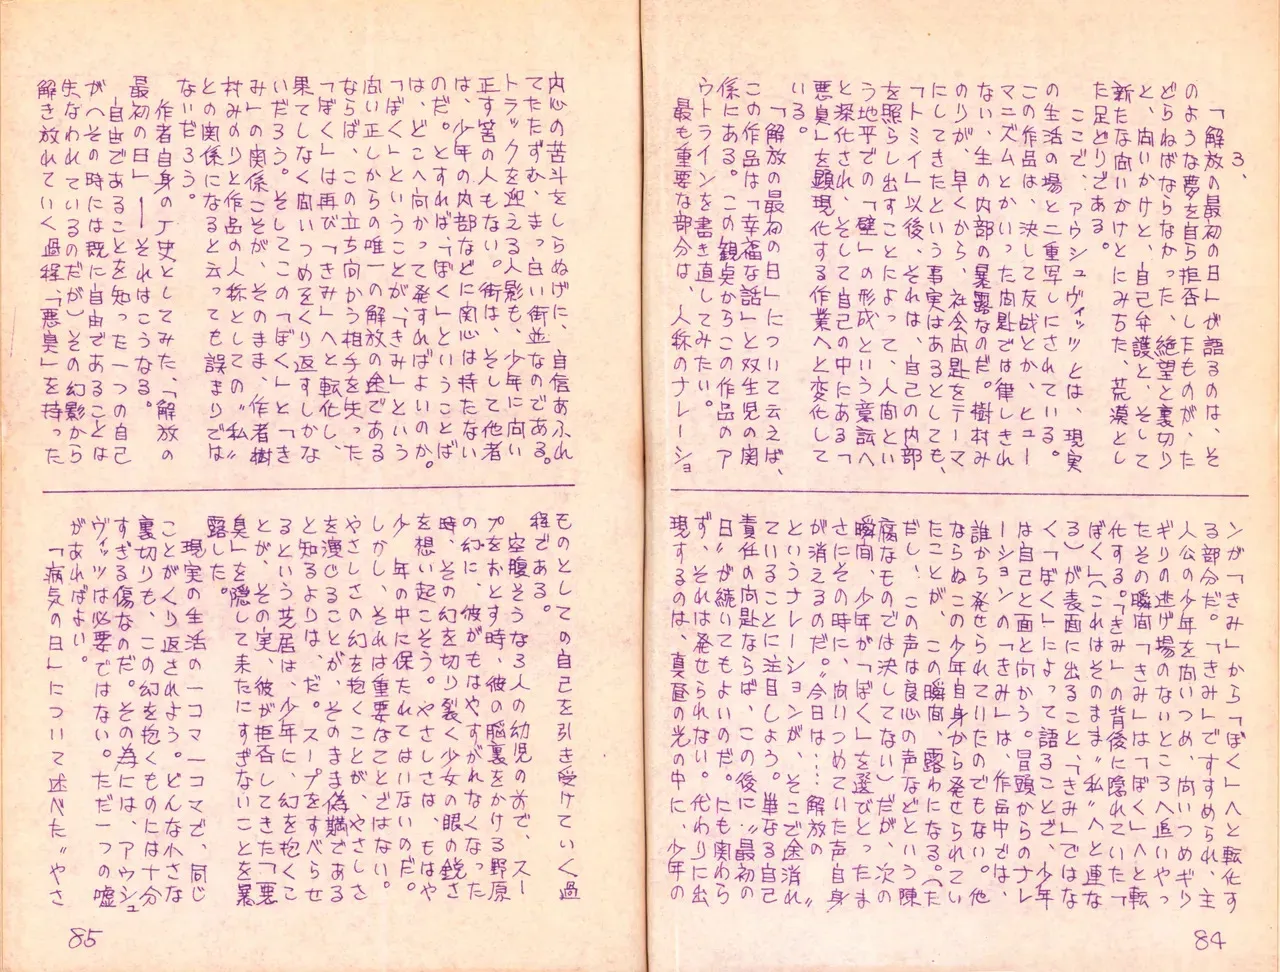 3、
「解放の最初の日」が語るのは、そ
のような夢を自ら拒否したものが、た
どらねばならなかった、絶望と裏切り
と、向いかけと、自己弁護と、そして
新たな向いかけとにみちた、荒漠とし
た足どりである。
ここで、アウシュヴィッツとは、現実
の生活の場と二重写しにされている。
この作品は、決して反戦とか、ヒュー
マニズムとかいった問題では律しきれ
ない、生の内部の暴露なのだ。樹村み
のりが、早くから、社会問題をテーマ
にしてきたという事実はあるとしても、
「トミイ」以後、それは、自己の内部
を照らし出すことによって、人間とい
う地平での「壁」の形成という意識へ
と深化され、そして自己の中にある「
悪臭」を顕現化する作業へと変化して
いる。
「解放の最初の日」について云えば、
この作品は「幸福な話」と双生児の関
係にある。この観点からこの作品のア
ウトラインを書き直してみたい。
最も重要な部分は、人称のナレーショ
ンが「きみ」から「ぼく」へと転化す
る部分だ。「きみ」ですすめられ、主
人公の少年を向いつめ、向いつめギリ
ギリの逃げ場のないところへ追いやっ
たその瞬間「きみ」は「ぼく」へと転
化する。「きみ」の背後に隠れていた「
ぼく」(これはそのまま〝私〟へと連な
る)が表面に出ること、「きみ」ではな
く「ぼく」によって語ることで、少年
は自己と面と向かう。冒頭からのナレ
ーションの「きみ」は、作品中では、
誰から発せられていたのでもない。他
ならぬこの少年自身から発せられてい
たことが、この瞬間、露わになる。(た
だし、この声は良心の声などという陳
腐なものでは決してない)だが、次の
瞬間、少年が「ぼく」を選びとったま
さにその時に、向いつめていた声自身
が消えるのだ。〝今日は…解放の〟
というナレーションが、そこで途消れ
ていることに注目しよう。単なる自己
責任の問題ならば、この後に〝最初の
日〟が続いてもよいのだ。にも関わら
ず、それは発せられない。代わりに出
現するのは、真昼の光の中に、少年の
84
内心の苦斗をしらぬげに、自信あふれ
てたたずむ、まっ白い街並なのである。
トラックを迎える人影も、少年に向い
正す筈の人もない。街は、そして他者
は、少年の内部などに関心は持たない
のだ。とすれば、「ぼく」ということば
は、どこへ向かって発すればよいのか。
「ぼく」ということが、「きみ」という
向い正しからの唯一の解放の途である
ならば、この立ち向かう相手を失った
「ぼく」は再び「きみ」へと転化し、
果てしなく向いつめをくり返すしかな
いだろう。そしてこの「ぼく」と「き
み」の関係こそが、そのまま、作者樹
村みのりと作品の人称としての〝私〟
との関係になると云っても誤まりでは
ないだろう。
作者自身の歴史としてみた、「解放の
最初の日」——それはこうなる。
——自由であることを知った一つの自己
が(その時には既に自由であることは
失なわれているのだが)その幻影から
解き放れていく過程、「悪臭」を持った
ものとしての自己を引き受けていく過
程である。
空腹そうな3人の幼児のすで、スー
プをおとす時、彼の脳裏をかける野原
の幻に、彼がもはやすがれなくなった
時、その幻を切り裂く少女の眼の鋭さ
を想い起こそう。やさしさは、もはや
少年の中に保たれてはいないのだ。
しかし、それは重要なことではない。
やさしさの幻を抱くことが、やさしさ
を演じることが、そのまま偽瞞である
と知るよりは、だ。スープをすべらせ
るという芝居は、少年に、幻を抱くこ
とが、その実、彼が拒否してきた「悪
臭」を隠して来たにすぎないことを暴
露した。
現実の生活の一コマ一コマで、同じ
ことがくり返されよう。どんな小さな
裏切りも、この幻を抱くものには十分
すぎる傷なのだ。その為には、アウシュ
ヴィッツは必要ではない。ただ一つの嘘
があればよい。
「病気の日」について述べた〝やさ
85